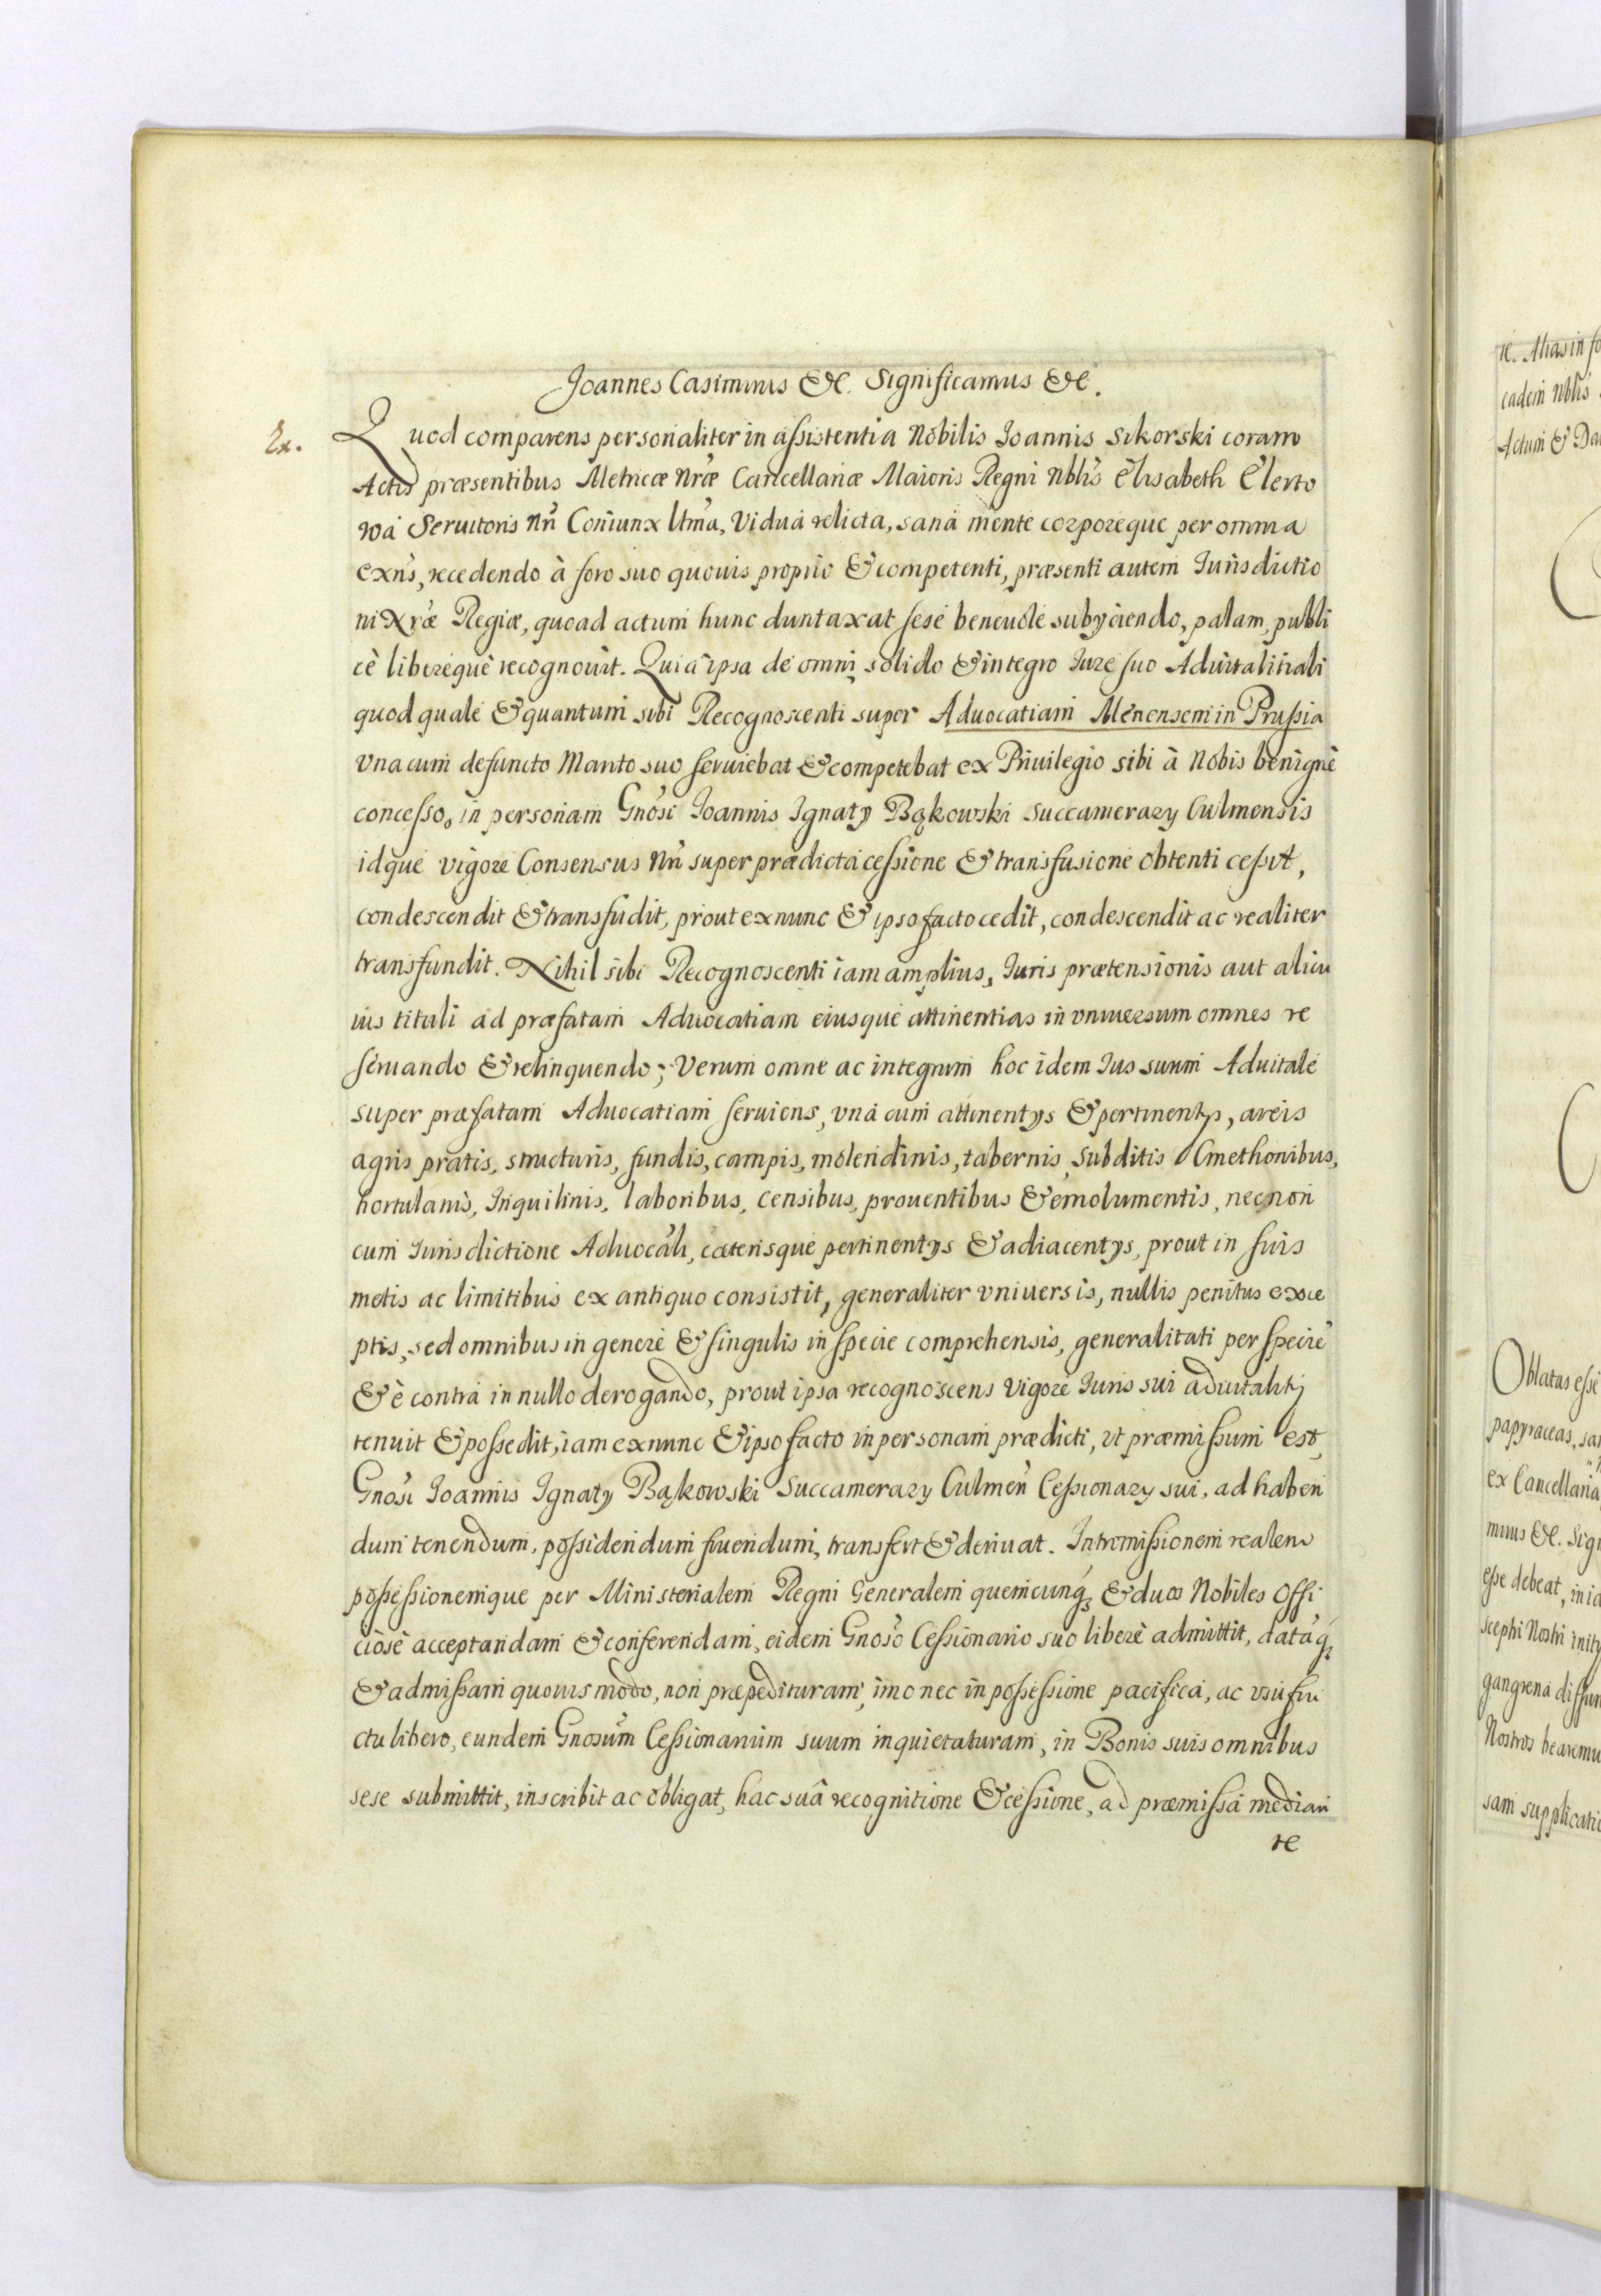 Joannes Casimirus &c. Significamus &c.
Ex.
Quod comparens personaliter in assistentia Nobilis Joannis Sikorski coram
Actis præsentibus Metricæ Nræ Cancellariæ Maioris Regni Nblis Elisabeth Elerto
wa Servitoris Nri Coniunx ltma, Vidua relicta, sana mente corporeque per omnia
exns, recedendo à foro suo quovis proprio & competenti, præsenti autem Jurisdictio
ni Nræ Regiæ, quoad actum hunc duntaxat sese benevole subyciendo, palam, publi
cè libereque recognovit. Quia ipsa de omni solido & integro Jure suo Advitalitiali
quod quale & quantum sibi Recognoscenti super Advocatiam Menensem in Prussia
vna cum defuncto Marito suo serviebat & competebat ex Privilegio sibi à Nobis benignè
concesso, in personam Gnosi Joannis Ignaty Bąkowski Succamerary Culmensis
idque vigore Consensus Nri super prædicta cessione & transfusione obtenti cessit,
condescendit & transfudit, prout ex nunc & ipso facto cedit, condescendit ac realiter
transfundit. Nihil sibi Recognoscenti iam amplius, Juris prætensionis aut alicu
ius tituli ad præfatam Advocatiam eiusque attinentias in vniversum omnes re
servando & relinquendo; Verum omne ac integrum hoc idem Jus suum Advitale
super præfatam Advocatiam serviens, vna cum attinentys & pertinentys, areis
agris pratis, structuris, fundis, campis, molendinis, tabernis, subditis Cmethonibus,
hortulanis, Inquilinis, laboribus, censibus, proventibus & emolumentis, necnon
cum Jurisdictione Advocali, cæterisque pertinentys & adiacentys, prout in suis
metis ac limitibus ex antiquo consistit, generaliter vniversis, nullis penitus exce
ptis, sed omnibus in genere & singulis in specie comprehensis, generalitati per specie
& è contra in nullo derogando, prout ipsa recognoscens vigore Juris sui advitalitij
tenuit & possedit, iam ex nunc & ipso facto in personam prædicti, vt præmissum est,
Gnosi Joannis Ignaty Bąkowski Succamerary Culmen Cessionary sui, ad haben
dum tenendum, possidendum fruendum, transfert & derivat. Intromissionem realem
possessionemque per Ministerialem Regni Generalem quemcunq & duos Nobiles offi
ciose acceptandam & conferendam, eidem Gnoso Cessionario suo liberè admittit, dataq
& admissam quovis modo, non præpedituram, imo nec in possessione pacifica, ac vsu fru
ctu libero, eundem Gnosum Cessionarium suum inquietaturam, in Bonis suis omnibus
sese submittit, inscribit ac obligat, hac suâ recognitione & cessione, ad præmissa median
te